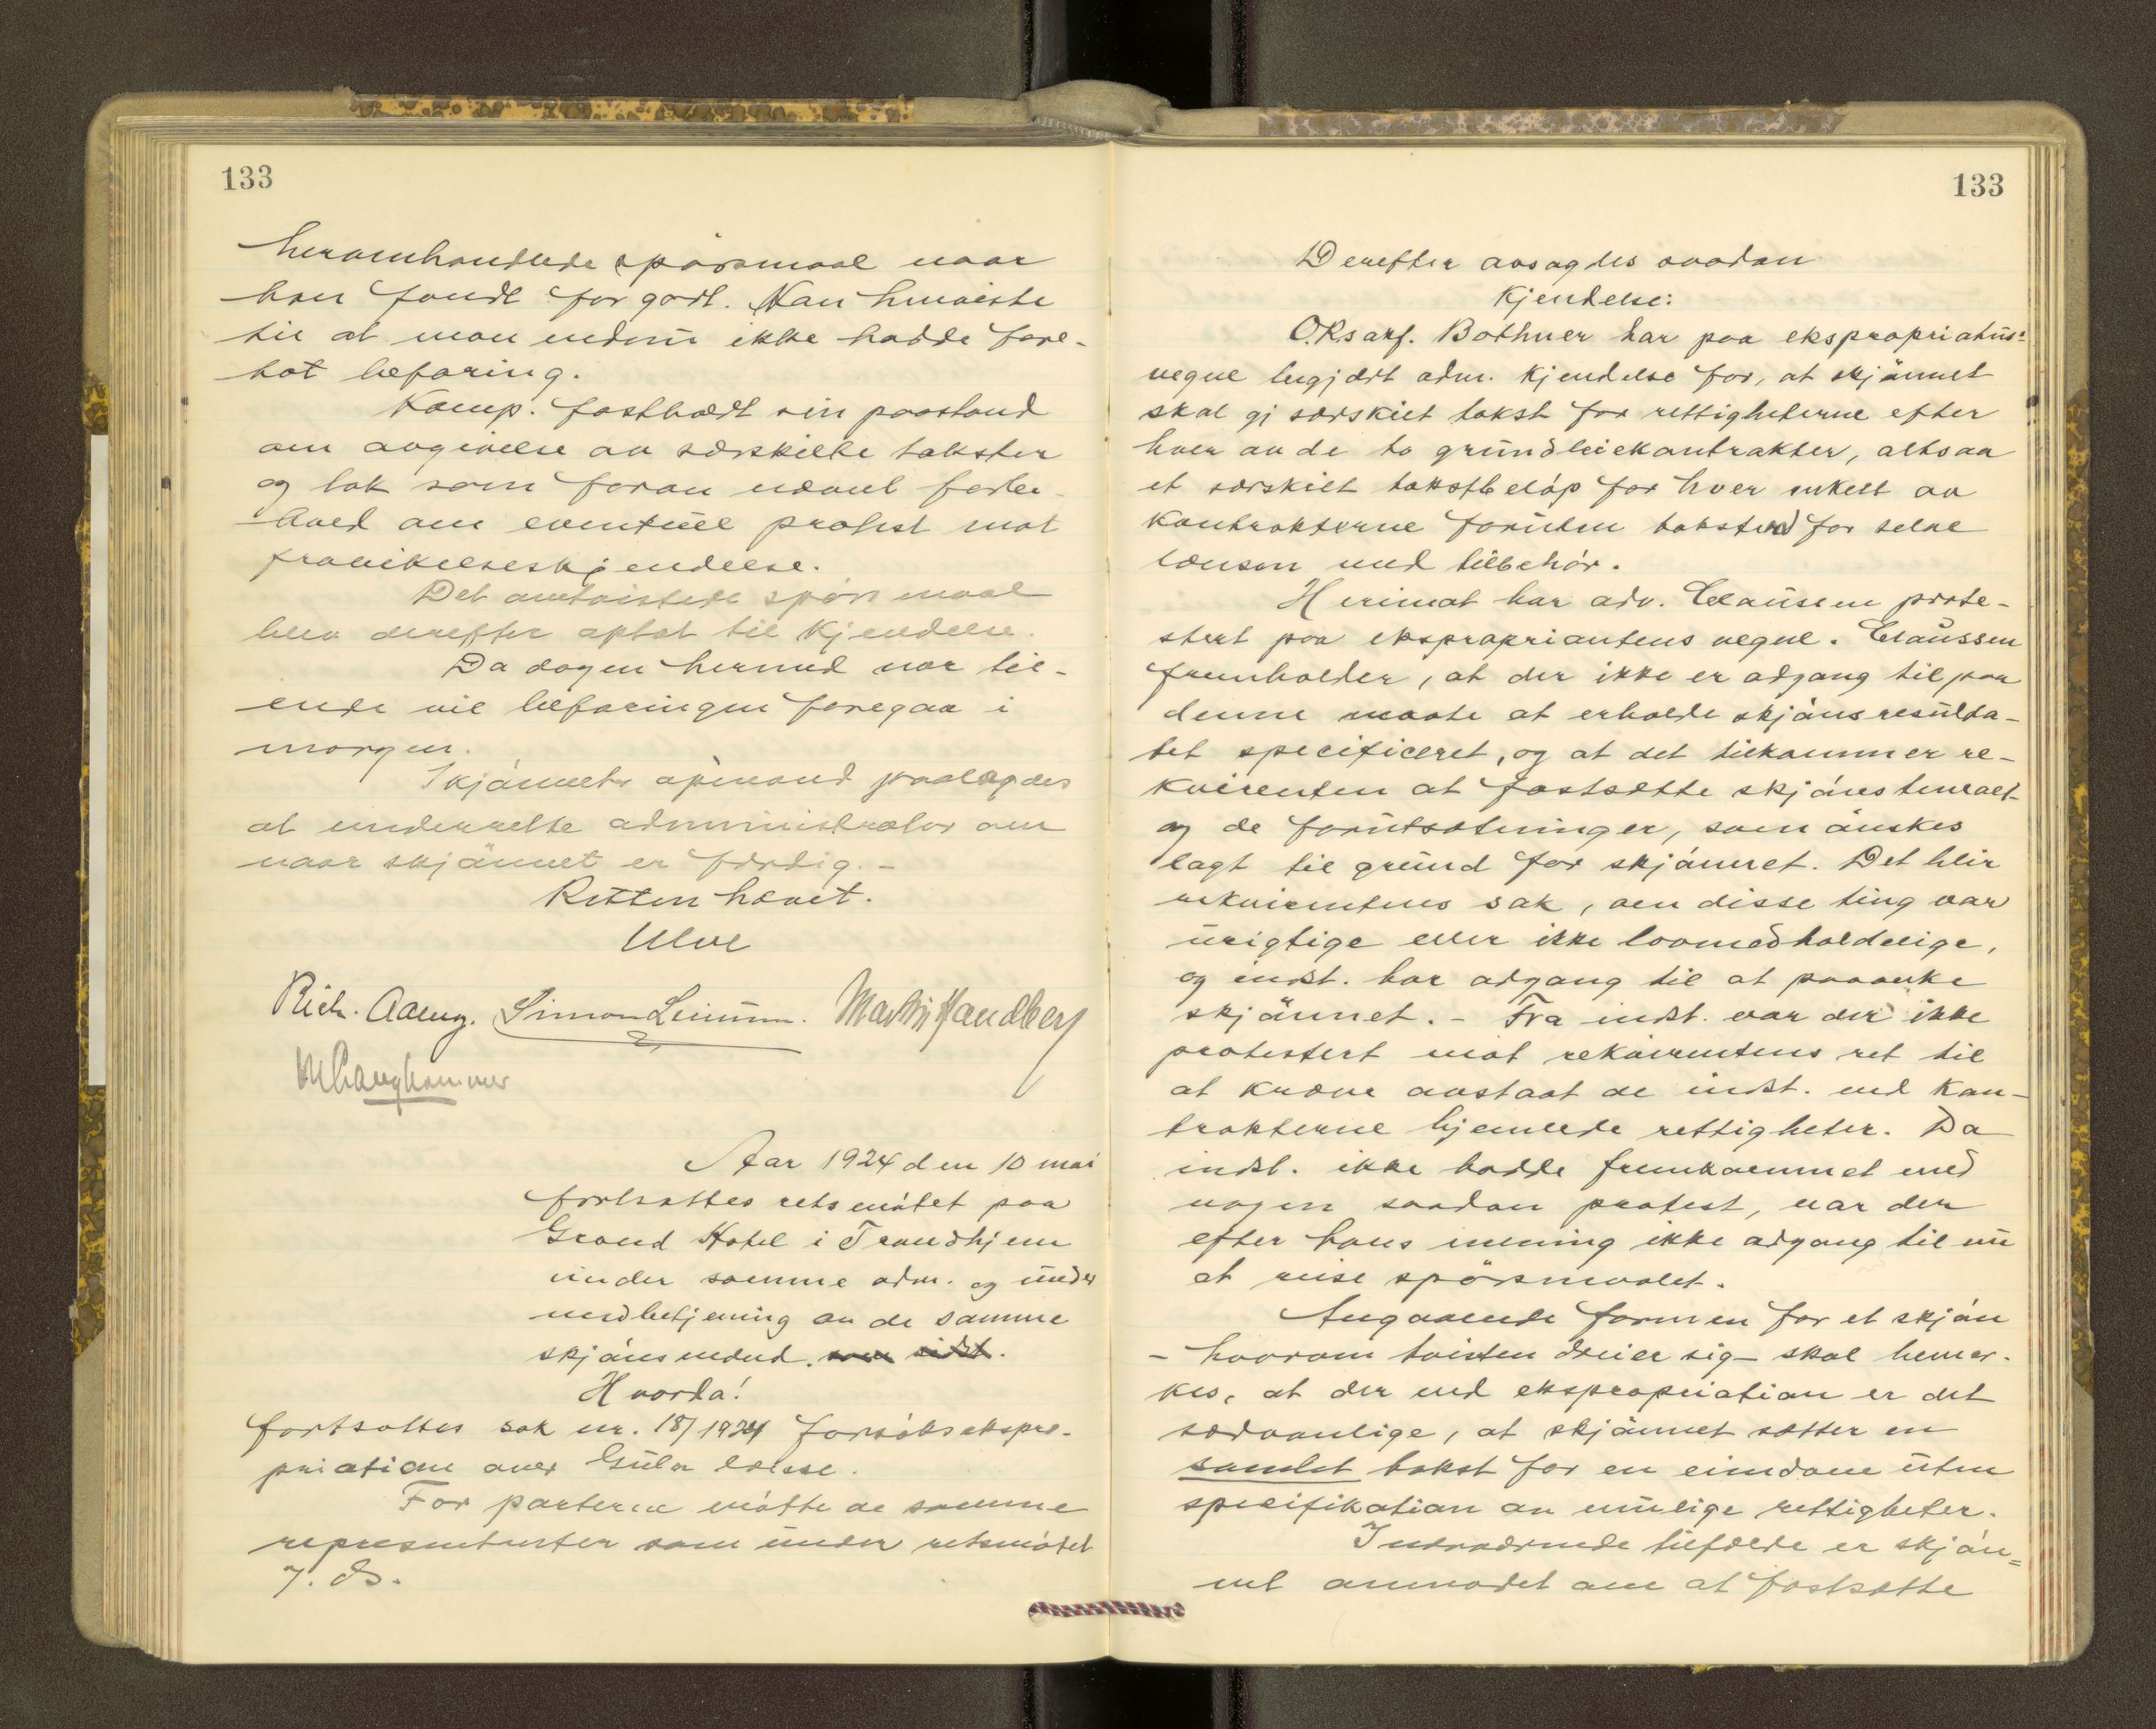 133
heromhandlede spörsmaal naar
han fandt for godt. Han henviste
til at man endnu ikke hadde fore-
tat befaring.
Komp. fastholdt sin paastand
om avgivelse av særskilte takster
og tok som foran nævnt forbe-
hold om eventuel protest mot
fravikelseskjendelse.
Det omtvistede spörsmaal
blev derefter optat til kjendelse.
Da dagen hermed var til-
ende vil befaringen foregaa i
morgen.
Skjönnets opmand paalagdes
at underrette administrator om
naar skjönnet er færdig. -
Retten hævet.
Ulve
Rich. Aaeng. Simon Leinum. Martin Sandberg
M Langhammer
Aar 1924 den 10 mai
fortsattes retsmötet paa
Grand Hotel i Trondhjem
under samme adm. og under
medbetjening av de samme
skjönsmænd. som sidst.
Hvorda!
fortsattes sak nr. 18/1924 forsöksekspro-
priation over Gula lænse.
For parterne mötte de samme
representanter som under retsmötet
7. ds.
133
Derefter avsagdes saadan
Kjendelse:
O.Rsakf. Bothner har paa ekspropriatus:
vegne begjært adm. kjendelse for, at skjönnet
skal gi særskilt takst for rettigheterne efter
hver av de to grundleiekontrakter, altsaa
et særskilt takstbelöp for hver enkelt av
kontrakterne foruten taksten for selve
lænsen med tilbehör.
Herimot har adv. Claussen prote-
stert paa ekspropriantens vegne. Claussen
fremholder, at der ikke er adgang til paa
denne maate at erholde skjönsresulta-
tet specificeret, og at det tilkommer re-
kvirenten at fastsætte skjönstemaet
og de forutsætninger, som önskes
lagt til grund for skjönnet. Det blir
rekvirentens sak, om disse ting var
urigtige eller ikke lovmedholdelige,
og indst. har adgang til at paaanke
skjönnet. - Fra indst. var der ikke
protestert mot rekvirentens ret til
at kræve avstaat de indst. ved kon-
trakterne hjemlede rettigheter. Da
indst. ikke hadde fremkommet med
nogen saadan protest, var der
efter hans mening ikke adgang til nu
at reise spörsmaalet.
Angaaende formen for et skjön
- hvorom tvisten dreier sig - skal bemer-
kes, at der ved ekspropriation er det
sædvanlige, at skjönnet sætter en
samlet takst for en eiendom uten
specifikation av mulige rettigheter.
I nærværende tilfælde er skjön-
net anmodet om at fastsætte